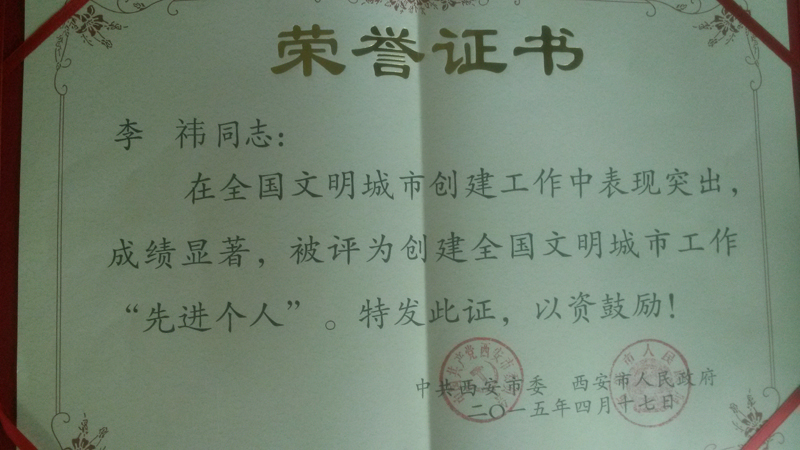 荣誉证书
李 祎同志：
在全国文明城市创建工作中表现突出，
成绩显著，被评为创建全国文明城市工作
“先进个人”。特发此证，以资鼓励！
中共西安市委 西安市人民政府
二〇一五年四月十七日